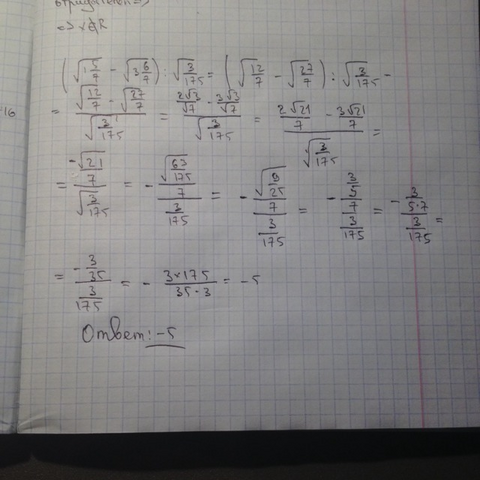 => x∉R
-16
(√(1 5/7) - √(3 6/7)) : √(3/175) = (√(12/7) - √(27/7)) : √(3/175) -
= (√(12/7) - √(27/7)) / √(3/175) = (2√3/√7 - 3√3/√7) / √(3/175) = (2√21/7 - 3√21/7) / √(3/175) =
= (-√21/7) / √(3/175) = - (√(63/175)/7) / (3/175) = - (√(9/25)/7) / (3/175) = - ((3/5)/7) / (3/175) = - (3/(5·7)) / (3/175) =
= (-3/35) / (3/175) = - (3×175)/(35·3) = -5
Ответ: -5